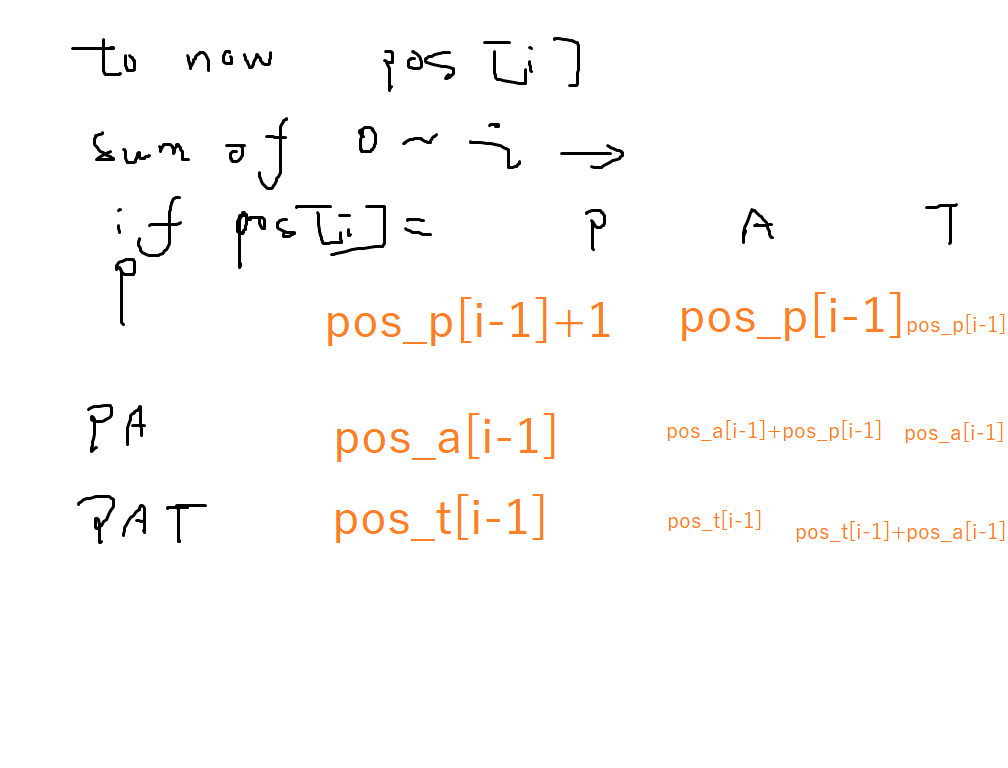 to now pos[i]
sum of 0 ~ i →
if pos[i] = P A T
P pos_p[i-1]+1 pos_p[i-1] pos_p[i-1]
PA pos_a[i-1] pos_a[i-1]+pos_p[i-1] pos_a[i-1]
PAT pos_t[i-1] pos_t[i-1] pos_t[i-1]+pos_a[i-1]